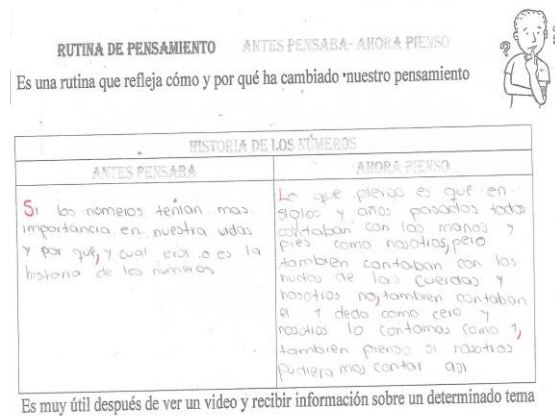 RUTINA DE PENSAMIENTO ANTES PENSABA- AHORA PIENSO
Es una rutina que refleja cómo y por qué ha cambiado nuestro pensamiento
HISTORIA DE LOS NÚMEROS
ANTES PENSABA
Si los números tenían mas
importancia en nuestra vidas
y por qué, y cual era o es la
historia de los números
AHORA PIENSO
Lo que pienso es qué en
siglos y años pasados todos
contaban con las manos y
pies como nosotros, pero
tambien contaban con los
nudos de las cuerdas y
nosotros no, tambien contaban
el 1 dedo como cero y
nosotros lo contamos como 1,
tambien pienso si nosotros
pudiera mos contar asi
Es muy útil después de ver un video y recibir información sobre un determinado tema